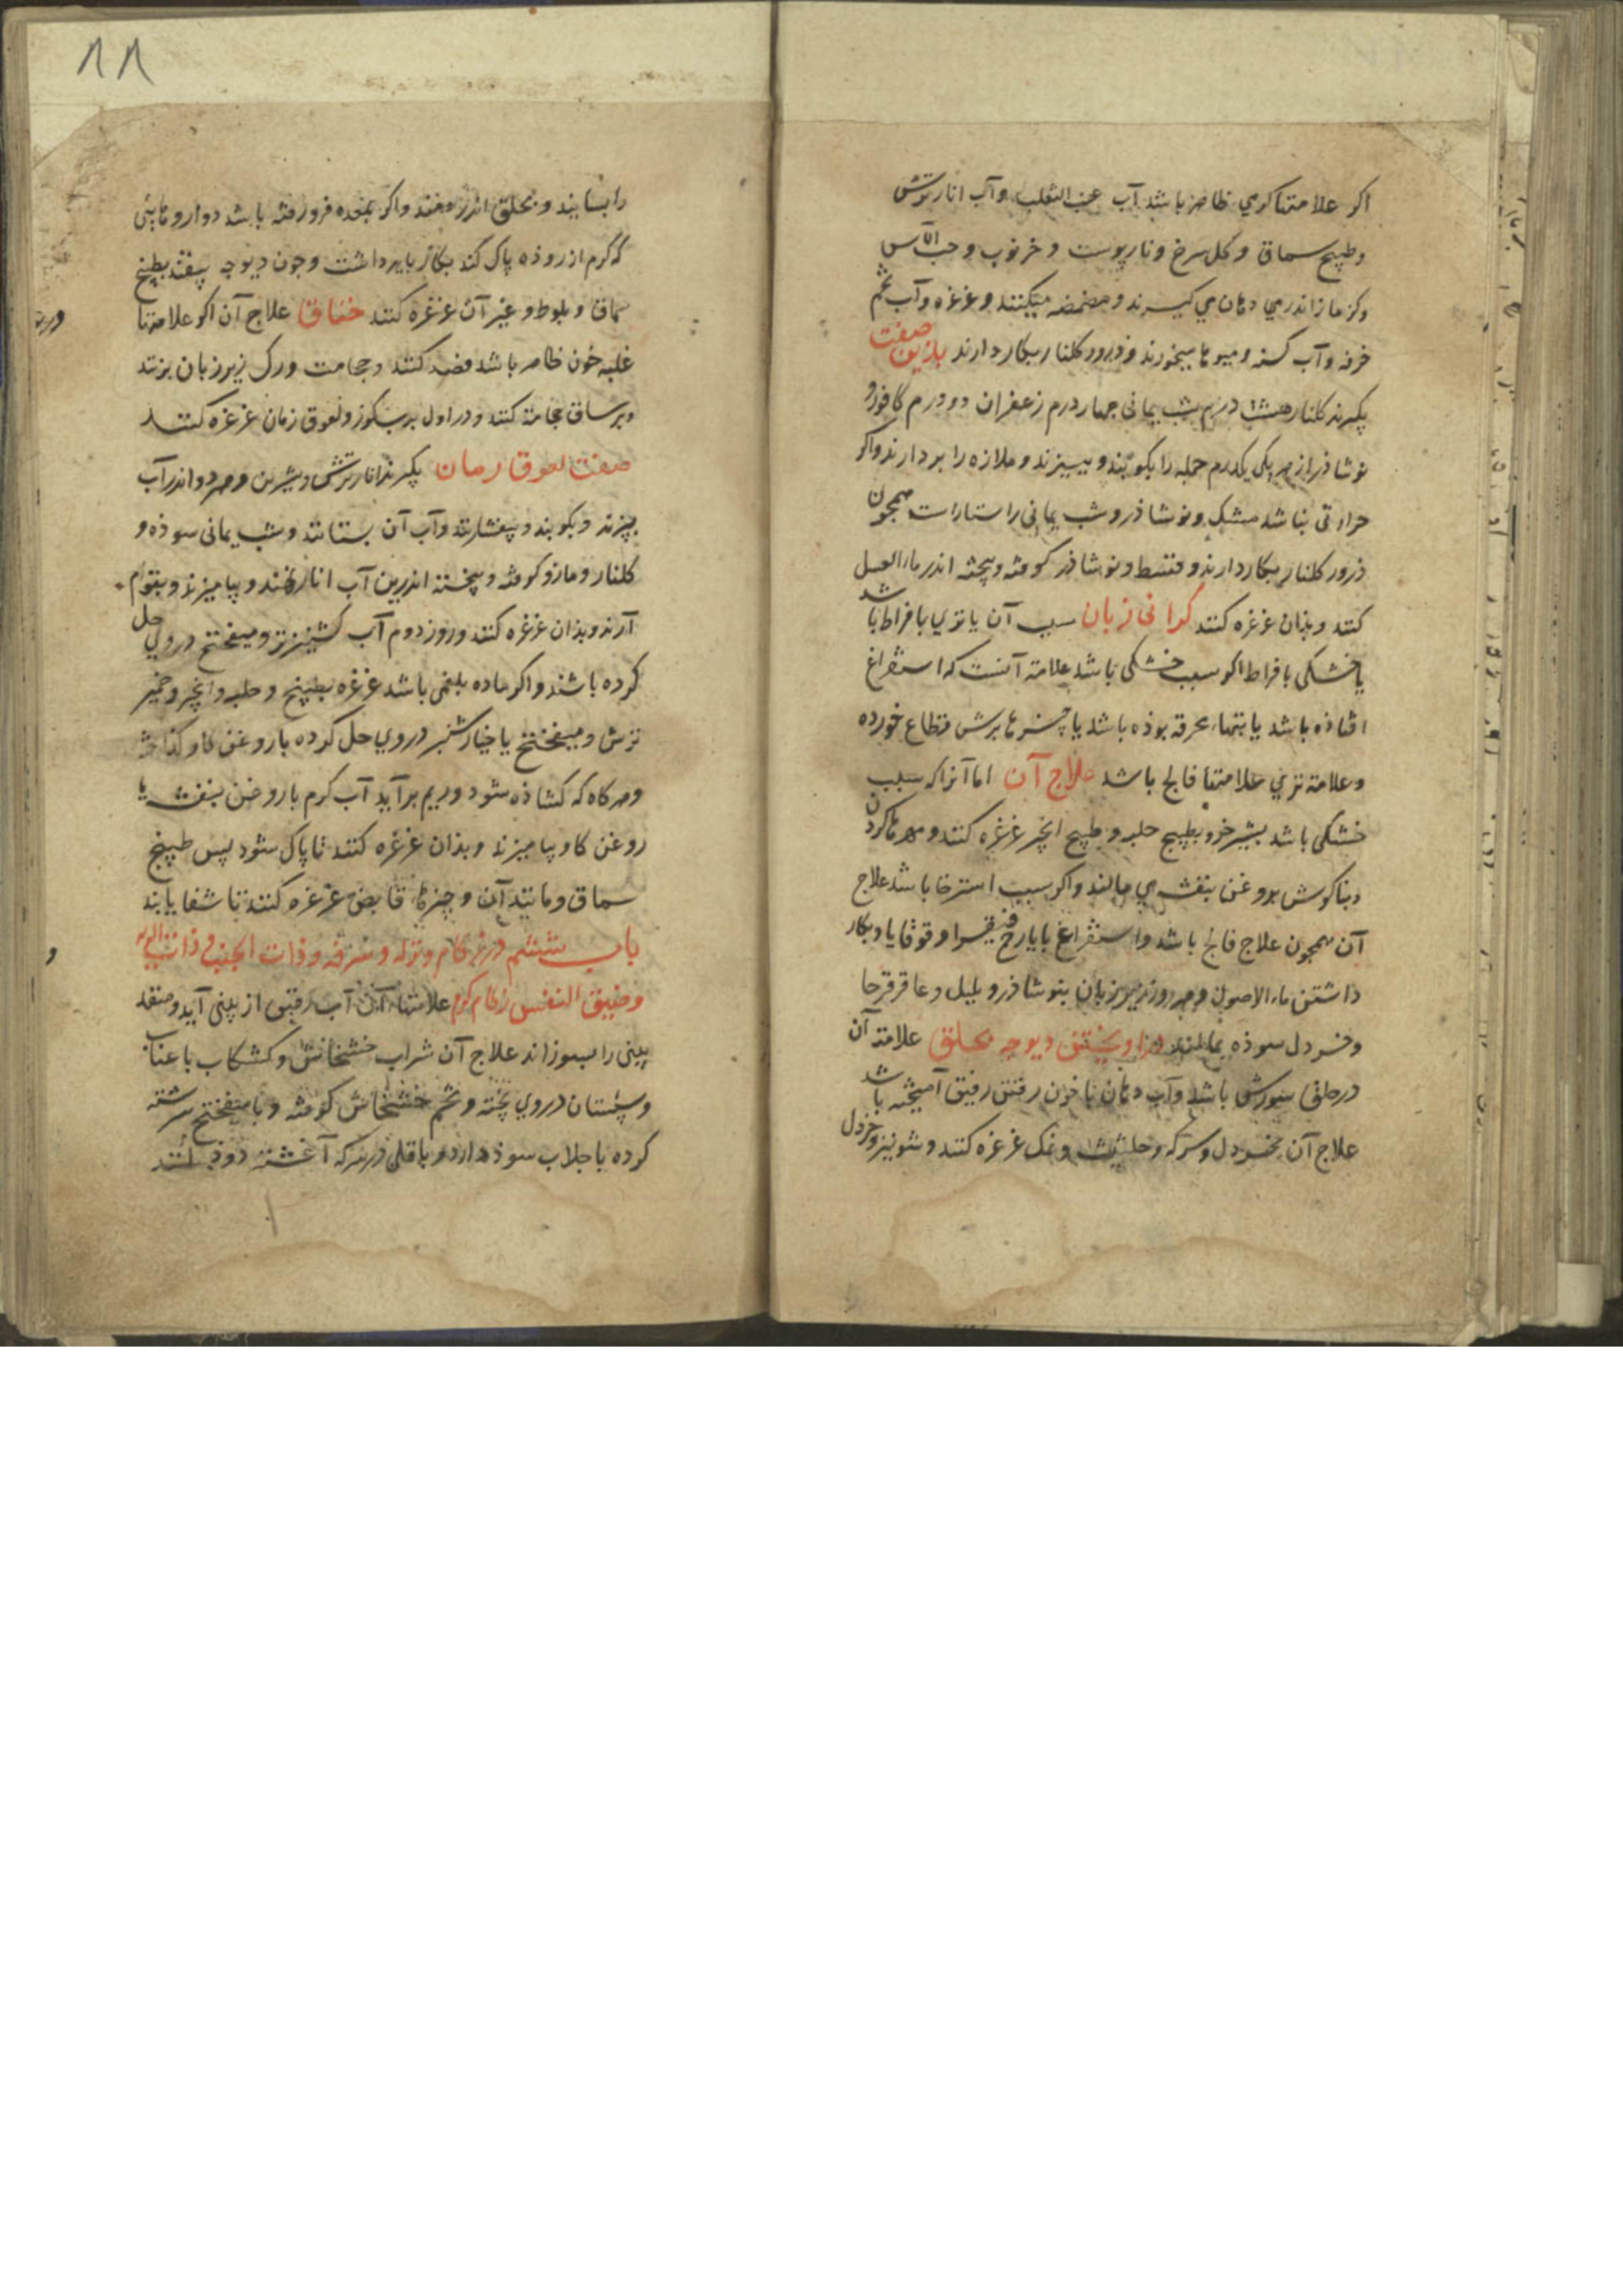 اکر علامتها کرمي ظاهر باشد آب عنب الثعلب و آب انار ترش
و طبیخ سماق و کل سرخ و نار پوست و خرنوب و حب الآس
و کز مازا اندر می دهان می کیرند و مضمضه میکنند و غرغره و آب تخم
خرفه و آب کسنه و میوها میخورند و ذرور کلنار بکار دارند بازین صفت
بکیرند کلنار هشت درم شب یمانی جهار درم زعفران دو درم کافور و
نوشاذر از هر یکی یکدرم جمله را بکوبند و ببیزند و ملازه را بردارند و اکر
حرارتی نباشد مشک و نوشاذر و شب یمانی راستاراست همجون
ذرور کلنار بکار دارند و قسط و نوشاذر کوفته و بیخته اندر ماء العسل
کنند و بذان غرغره کنند کرانی زبان سبب آن یا تري بافراط باشد
یا خشکی بافراط اکر سبب خشکی باشد علامة آنست که استفراغ
افتاذه باشد یا تبهاء محرقه بوذه باشد یا جیزها برش قطاع خورده
و علامة تري علامتها فالج باشد علاج آن اما آنرا که سبب
خشکی باشد بشیر خر و بطبیخ حلبه و طبیخ انجیر غرغره کنند و مهرها کردن
و بناکوش بروغن بنفشه می مالند و اکر سبب استرخا باشد علاج
آن همجون علاج فالج باشد و استفراغ بایارج فیقرا و قوقایا و بکار
داشتن ماء الاصول و هر روز زیر زبان بنوشاذر و پلپل و عاقرقرحا
و خردل سوذه بمالند اندر اویختن دیوجه بحلق علامة آن
در حلق سوزش باشد و آب دهان با خون رقیق آمیخته باشد
علاج آن بخردل و سرکه و حلتیت و نمک غرغره کنند و شونیز و خردل
۸۸
را بسایند و بحلق اندر دمند و اکر بمعده فرو رفته باشد دواروهائی
که کرم از روذه پاک کند بکار باید داشت و جون دیوجه بیفتد بطبیخ
سماق و بلوط و غیر آن غرغره کنند خناق علاج آن اکر علامتها
غلبه خون ظاهر باشد فصد کنند و حجامت و رک زیر زبان بزنند
و بر ساق حجامة کنند و در اول برب کوز و لعوق رمان غرغره کنند
صفت لعوق رمان بکیرند انار ترش و شیرین و هر دو اندر آب
بپزند و بکوبند و بیفشارند و آب آن بستانند و شب یمانی سوذه و
کلنار و مازو کوفته و بیخته اندرین آب انار نهند و بیامیزند و بقوام
آرند و بذان غرغره کنند و روز دوم آب کشنیز تر و میفختج در وي حل
کرده باشند و اکر ماده بلغمی باشد غرغره بطبیخ حلبه و انجیر و خمیر
ترش و میفختج یا خیارشنبر در وي حل کرده با روغن کاو کداخته
و هر کاه که کشاذه شود و ریم بر آید آب کرم با روغن بنفشه یا
روغن کاو بیامیزند و بذان غرغره کنند تا پاک شود پس طبیخ
سماق و مانند آن و جیزها قابض غرغره کنند تا شفا یابند
باب ششم در زکام و نزله و سرفه و ذات الجنب و ذات الریه
و ضیق النفس زکام کرم علامتهاء آن آب رقیق از بینی آید و منفذ
بینی را بسوزاند علاج آن شراب خشخاش و کشکاب با عناب
و سپستان در وي پخته و تخم خشخاش کوفته و با میفختج سرشته
کرده با جلاب سوذ دارد و باقلی در سرکه آغشته دوذ کنند